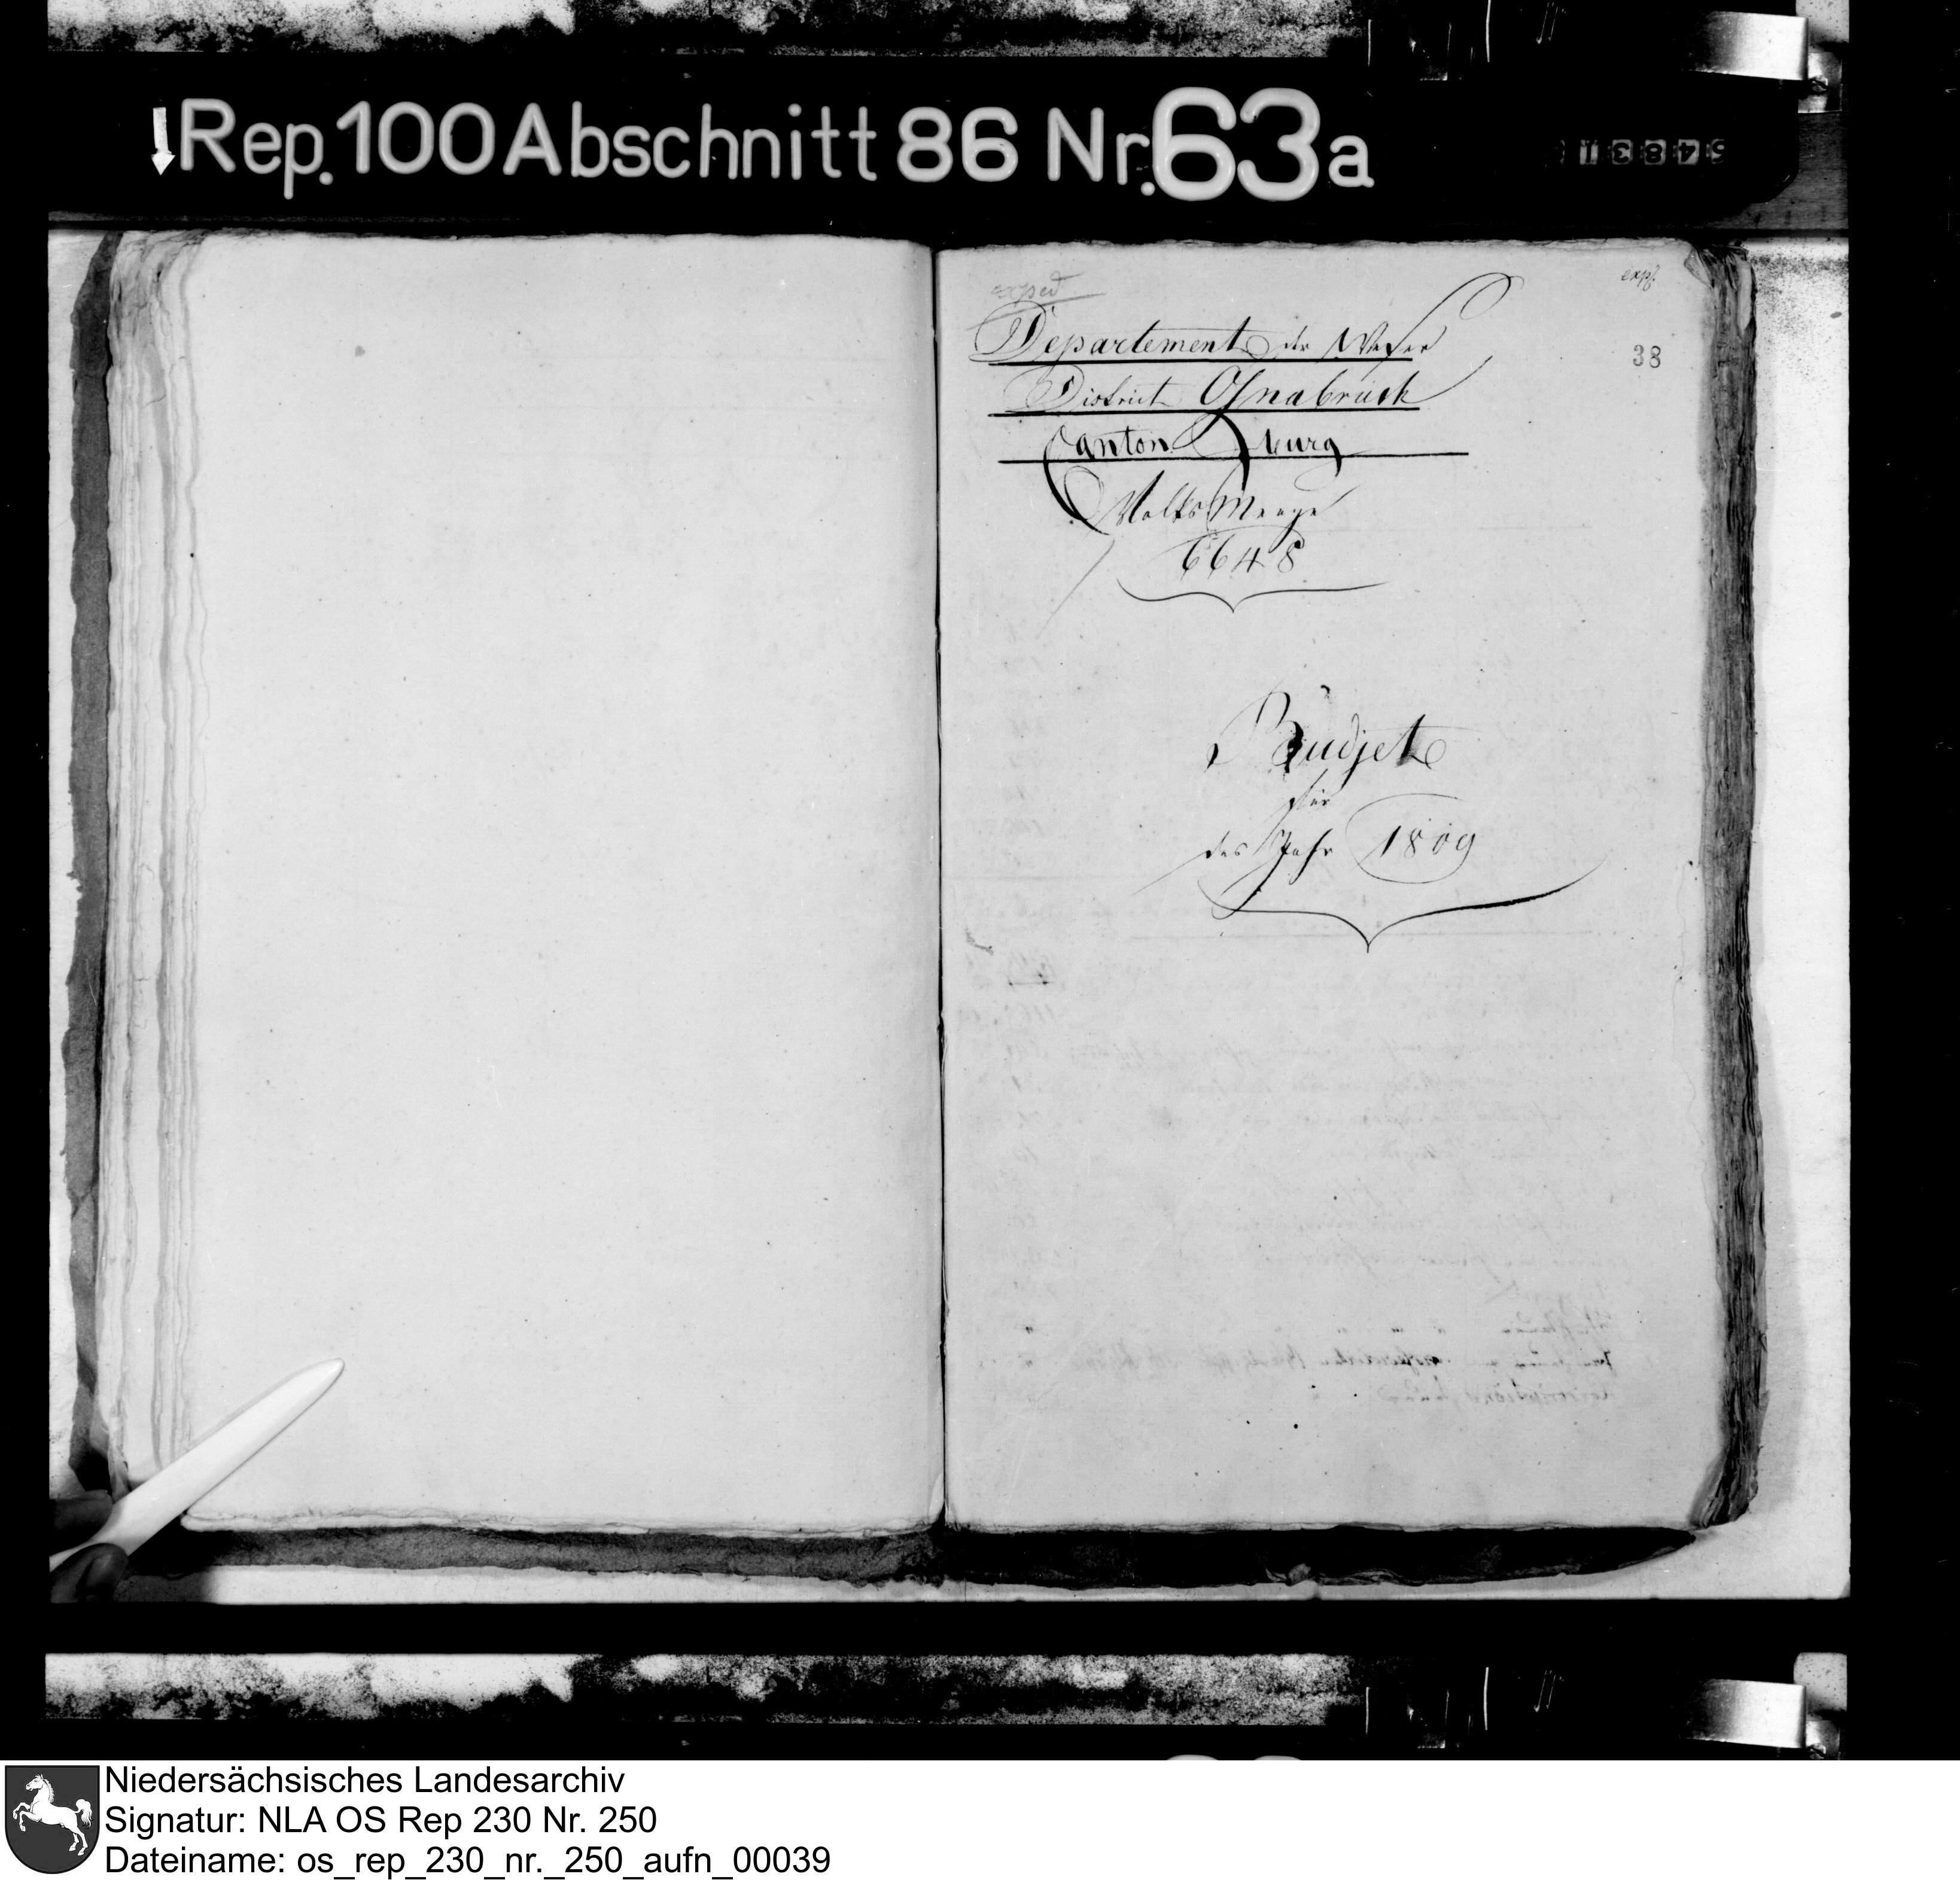 Rep. 100 Abschnitt 86 Nr. 63a
exped
expf.
38
Departement der Weser
District Osnabrück
Canton Iburg
Volks Menge
6648
Budjet
für
das Jahr 1809
Niedersächsisches Landesarchiv
Signatur: NLA OS Rep 230 Nr. 250
Dateiname: os_rep_230_nr._250_aufn_00039